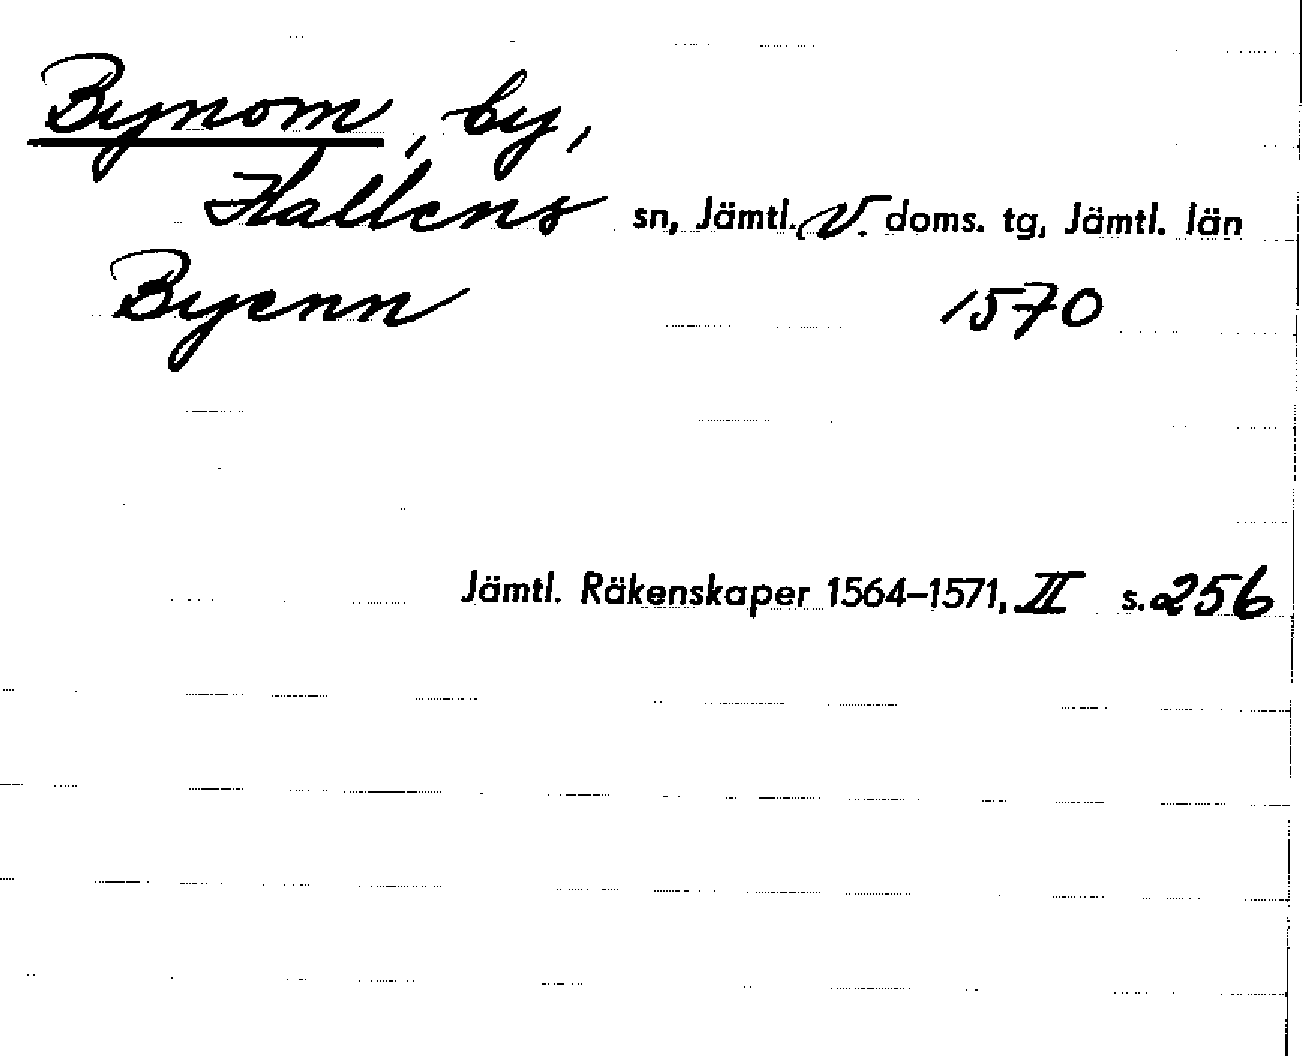 Bynom, by,
Hallens sn, Jämtl. V. doms. tg, Jämtl. län
Byenn 1570
Jämtl. Räkenskaper 1564–1571, II s. 256